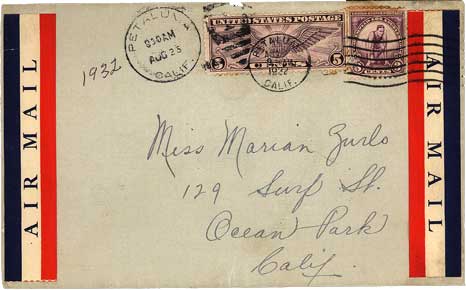 PETALUMA
830 AM
AUG 25
CALIF.
1932
UNITED STATES POSTAGE
5 5
1932
CALIF.
3 CENTS 3
AIR MAIL
AIR MAIL
Miss Marian Zurlo
129 Surf St.
Ocean Park
Calif.